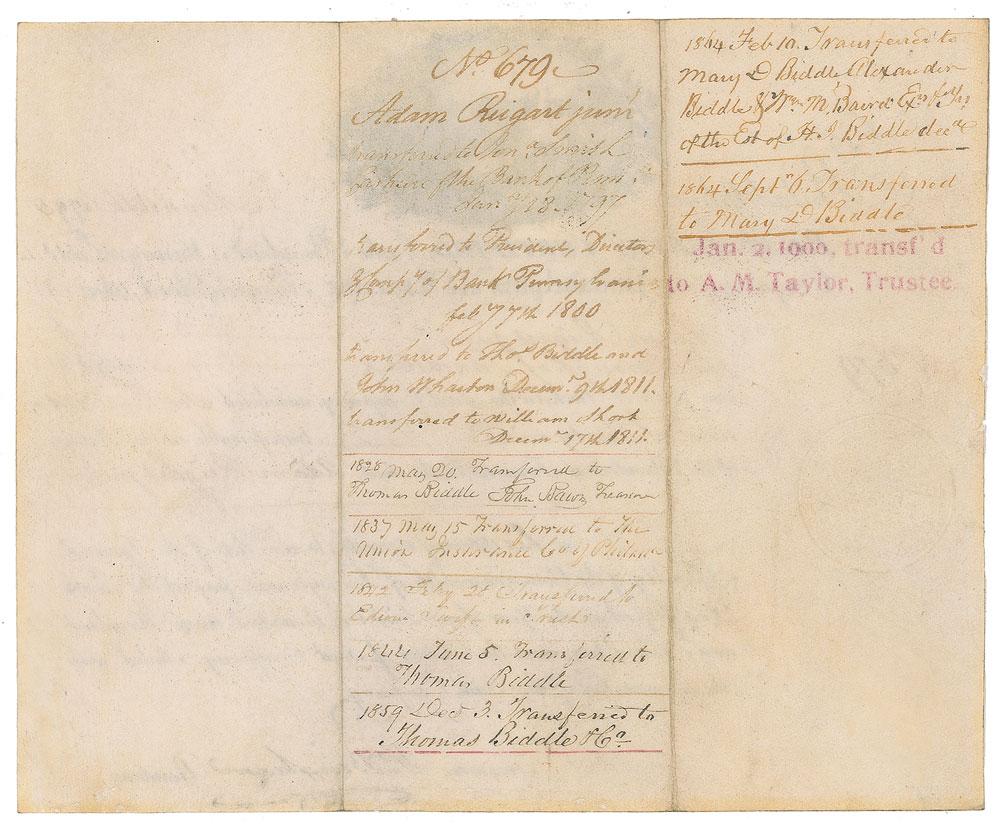 No. 679
Adam Reigart junr
transferred to Jona. Smith
Cashier of the Bank of Penn
Jany 28 97
transferred to President, Directors
& Compy of Bank Pennsylvania
feby 7th 1800
transferred to Thos. Biddle and
John Wharton Decemr. 9th 1811.
transferred to William Short
Decemr 17th 1811.
1828 May 20. Transferred to
Thomas Biddle John Treasurer
1837 May 15 Transferred to The
Union Insurance Co of Philada
1842 Feby 28 Transferred to
Edwin in Trust
1844 June 5. Transferred to
Thomas Biddle
1859 Dec 3. Transferred to
Thomas Biddle & Co
1864 Feb 10. Transferred to
Mary D Biddle Alexander
Biddle & Wm M. Baird Exrs
of the Est of H. J. Biddle decd
1864 Sept 6. Transferred
to Mary D Biddle
Jan. 2, 1900, transf'd
to A. M. Taylor, Trustee.